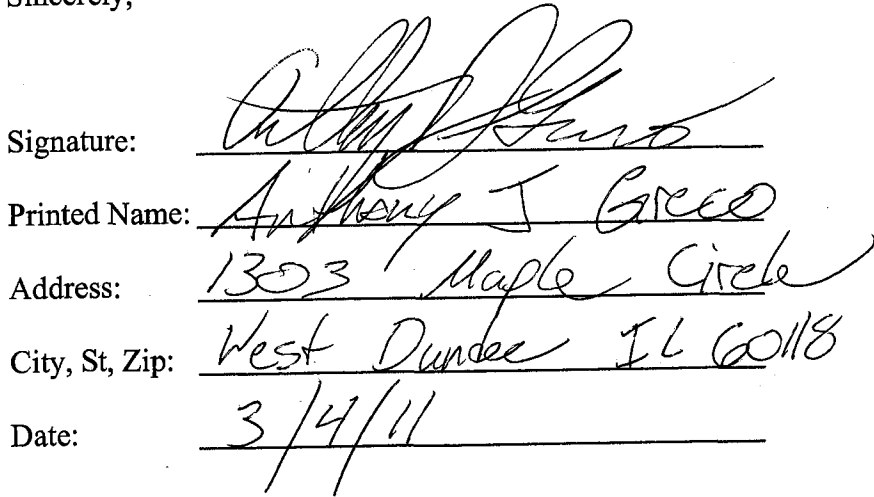 Sincerely,
Signature: Anthony J Greco
Printed Name: Anthony J Greco
Address: 1303 Maple Circle
City, St, Zip: West Dundee IL 60118
Date: 3/4/11